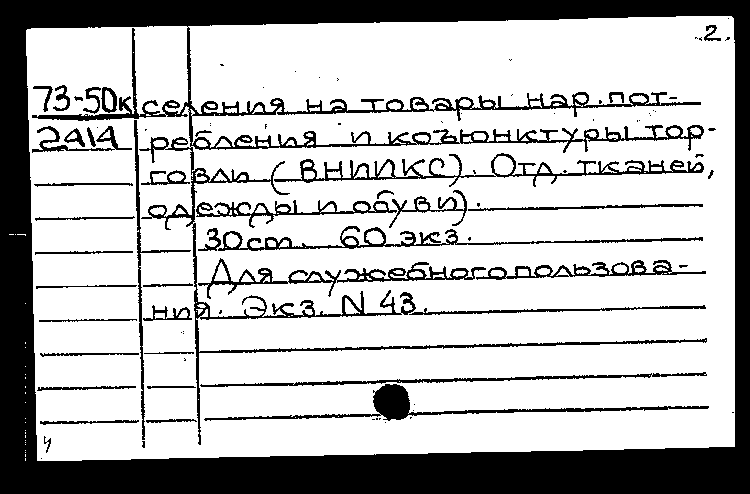 2.
73-50к селения на товары нар. пот-
2414 ребления и козъюнктуры тор-
говли (ВНИИКС). Отд. тканей,
одежды и обуви).
30 ст. 60 экз.
Для служебного пользова-
ния. Экз. N 43.